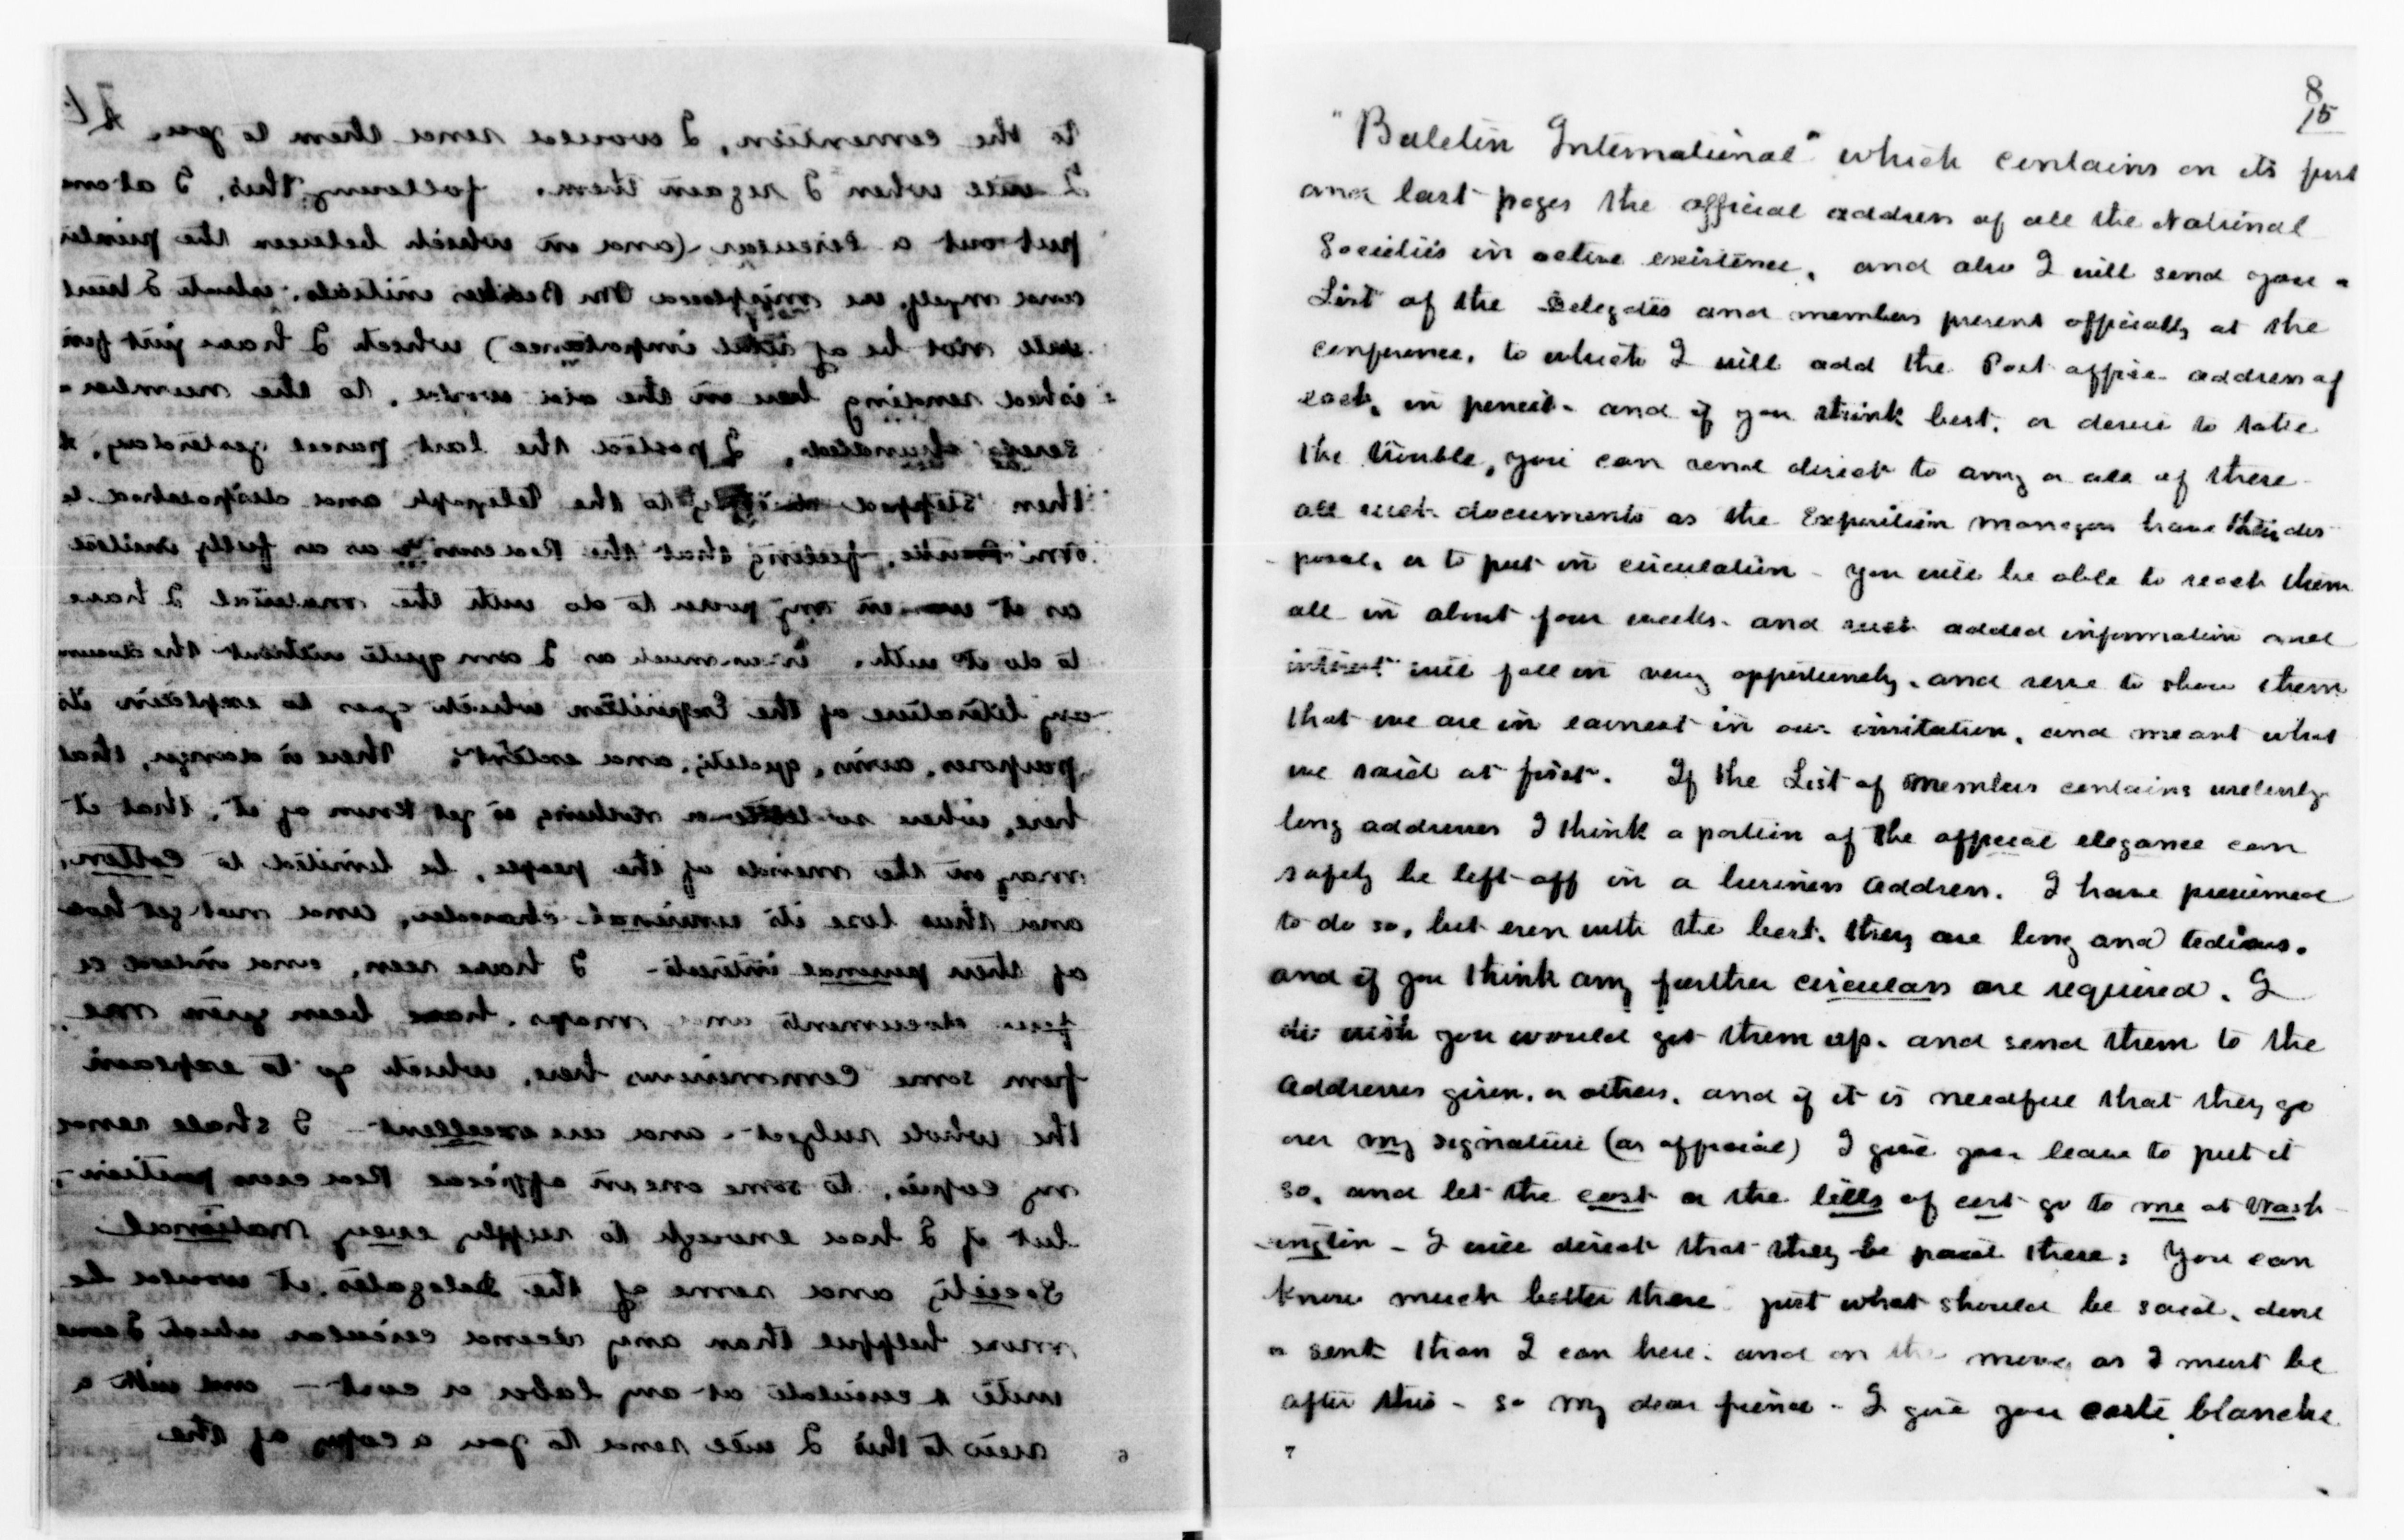 to the convention, I would send them to you.
I will when I regain them. following this, I at once
put out a circular (and in which between the printer
and myself, we misplaced Dr Bellows initials, which I trust
will not be of importance) which I have just fin
ished sending here in the old world, to the number
seventy hundred, I posted the last parcel yesterday, &
then stepped to the telegraph and despatched to
feeling that the Red Cross is as fully invited
as it was in my power to do with the material I have
to do it with. in as much as I am quite without the docum
ary literature of the Exposition which goes to explain its
purposes, aims, quality, and extent. There is danger, that
here, where so little or nothing is yet known of it, that it
may in the minds of the people, be limited to Cotton,
and thus lose its universal character, and must get hold
of their personal interests - I have seen, and indeed a
few documents and maps, have been given me
from some Commissions here, which go to explain
the whole subject - and are excellent - I shall send
my copies, to some one in official Red Cross position,
but if I had enough to supply every National
Society and some of the Delegates it would be
more helpful than any second circular which I can
write & circulate at any labor or cost - and with a
view to this I will send to you a copy of the
6
8
15
"Buletin International" which contains on its first
and last pages the official address of all the National
Societies in active existence, and also I will send you a
List of the Delegates and members present officially at the
conference, to which I will add the Post office address of
each, in pencil - and if you think best, or desire to take
the trouble, you can send direct to any or all of these
all such documents as the Exposition managers have their dis
posal, or to put in circulation - you will be able to reach them
all in about four weeks - and such added information and
interest will fall in very opportunely, and serve to show them
that we are in earnest in our invitation, and meant what
we said at first. If the List of members contains uselessly
long addresses I think a portion of the official elegance can
safely be left off in a business address. I have presumed
to do so, but even with the best, they are long and tedious.
and if you think any further circulars are required, I
do wish you would get them up - and send them to the
addresses given, or others, and if it is needful that they go
over my signature (as official) I give you leave to put it
so, and let the cost or the bills of cost go to me at Wash
-ington - I will direct that they be paid there; You can
know much better there just what should be said, done
or sent than I can here; and on the move, as I must be
after this - So my dear friend - I give you carte blanche
7